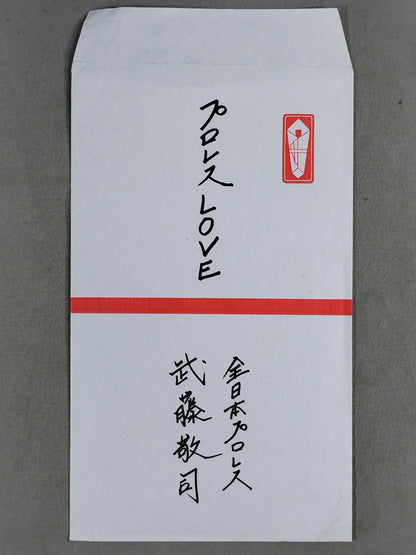 プロレス LOVE
全日本プロレス
武藤敬司